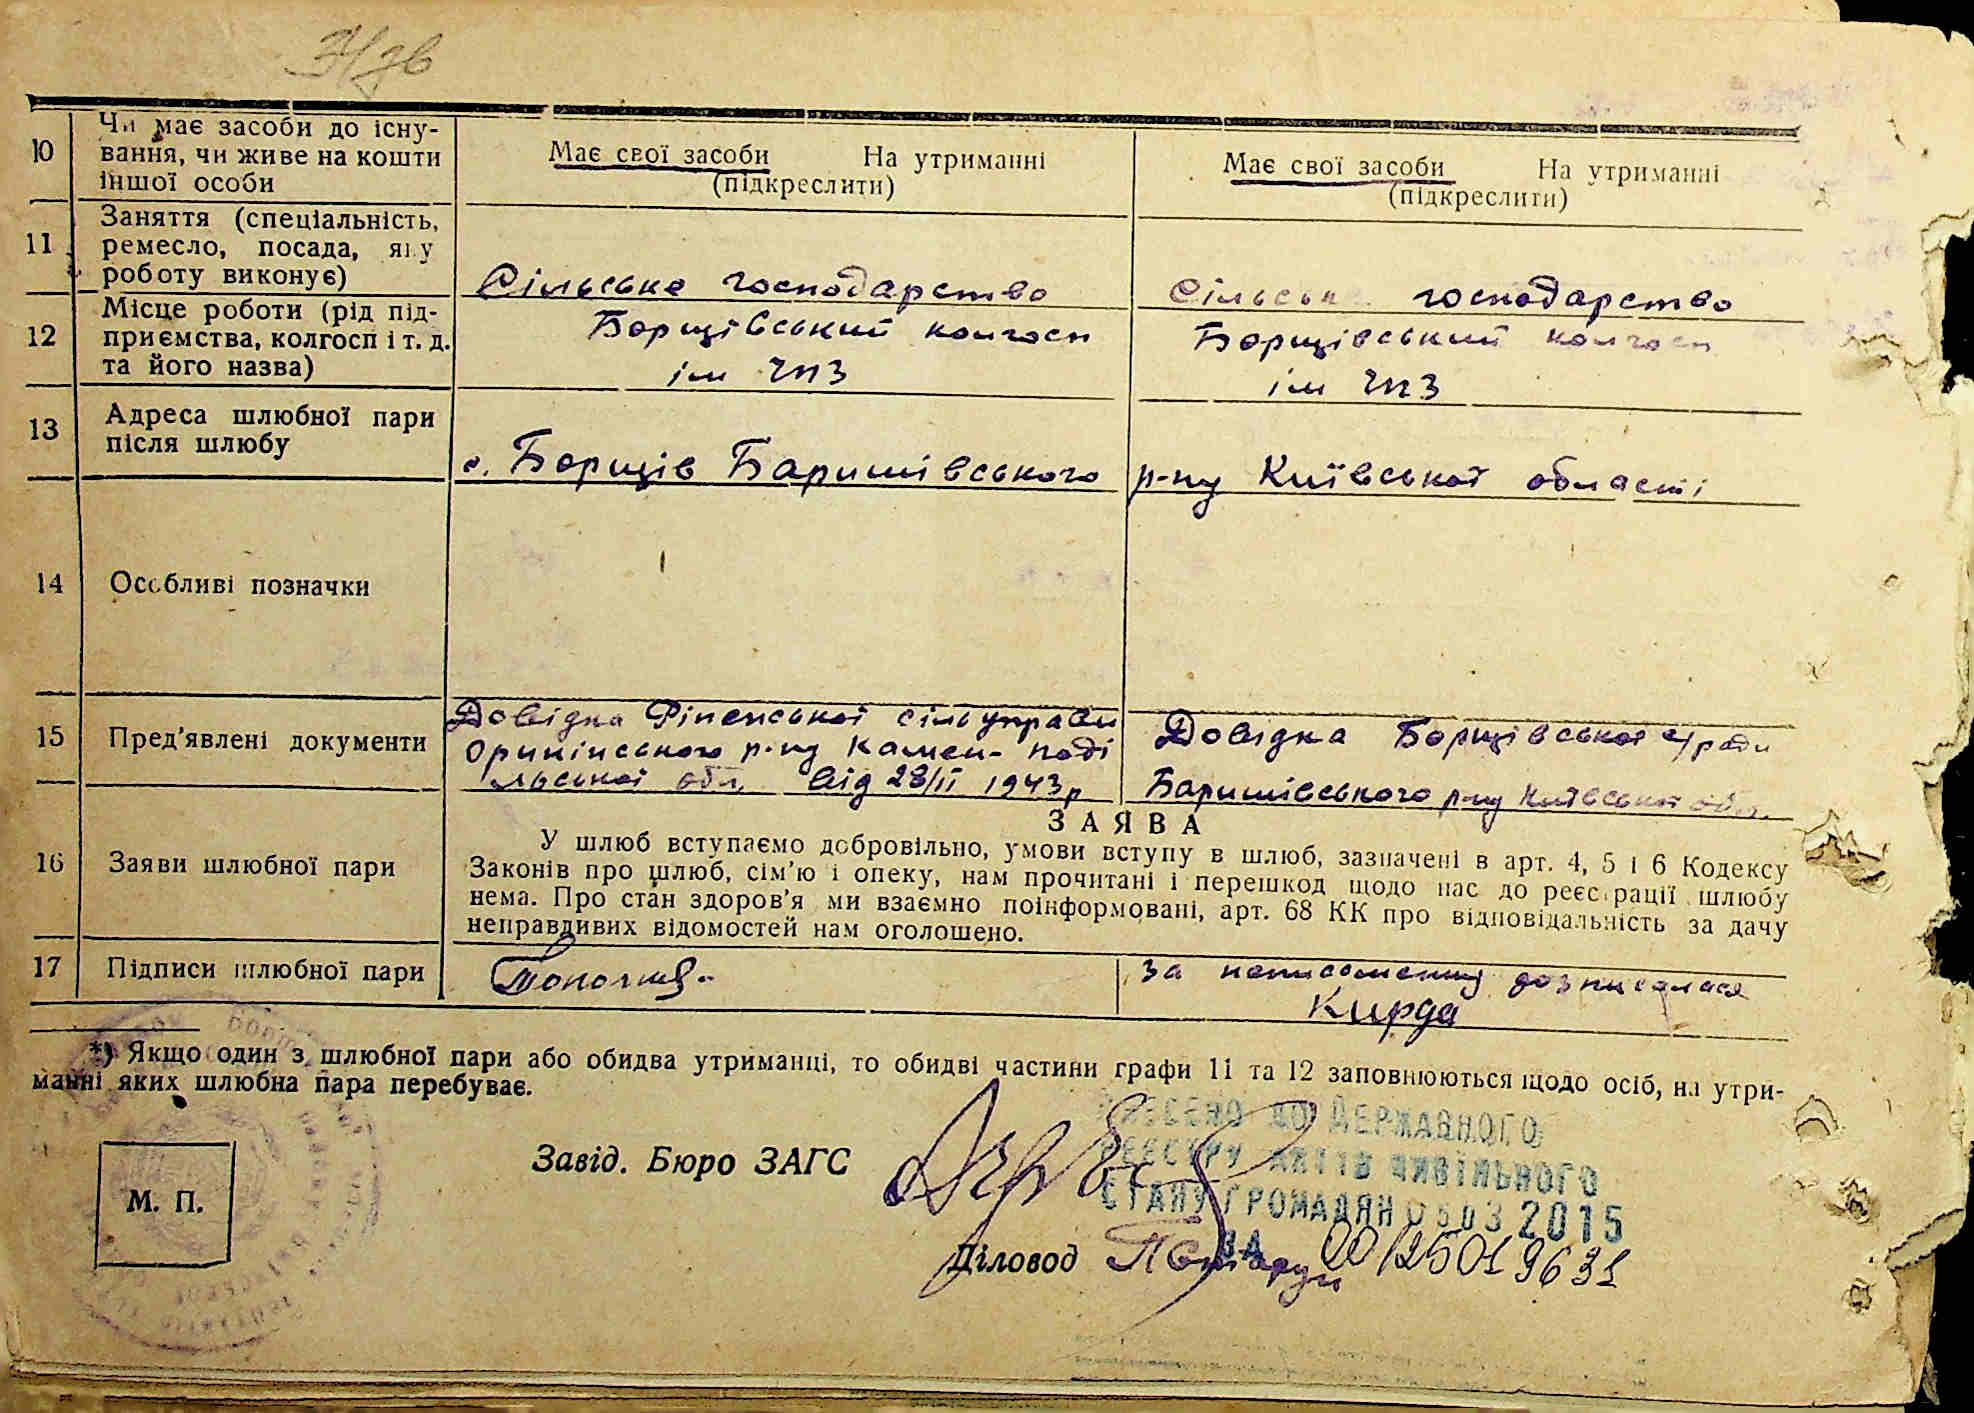 10
Чи має засоби до існу-
вання, чи живе на кошти
іншої особи
Має свої засоби На утриманні
(підкреслити)
Має свої засоби На утриманні
(підкреслити)
11
Заняття (спеціальність,
ремесло, посада, яку
роботу виконує)
Сільське господарство
Сільське господарство
12
Місце роботи (рід під-
приємства, колгосп і т. д.
та його назва)
Борщівський колгосп
ім ЧПЗ
Борщівський колгосп
ім ЧПЗ
13
Адреса шлюбної пари
після шлюбу
с. Борщів Баришівського р-ну Київської області
14
Особливі позначки
15
Пред'явлені документи
Довідка сільуправи
р-ну Камен- Поді
льської обл. від 28/II 1943р
Довідка Борщівської с/ради
Баришівського р-ну Київської обл.
16
Заяви шлюбної пари
ЗАЯВА
У шлюб вступаємо добровільно, умови вступу в шлюб, зазначені в арт. 4, 5 і 6 Кодексу
Законів про шлюб, сім'ю і опеку, нам прочитані і перешкод щодо нас до реєстрації шлюбу
нема. Про стан здоров'я ми взаємно поінформовані, арт. 68 КК про відповідальність за дачу
неправдивих відомостей нам оголошено.
17
Підписи шлюбної пари
за неписьменну
Кирда
*) Якщо один з шлюбної пари або обидва утриманці, то обидві частини графи 11 та 12 заповнюються щодо осіб, на утри-
манні яких шлюбна пара перебуває.
М. П.
Завід. Бюро ЗАГС
ВНЕСЕНО ДО ДЕРЖАВНОГО
РЕЄСТРУ АКТІВ ЦИВІЛЬНОГО
СТАНУ ГРОМАДЯН 0503 2015
Діловод
ЗА 00125019631